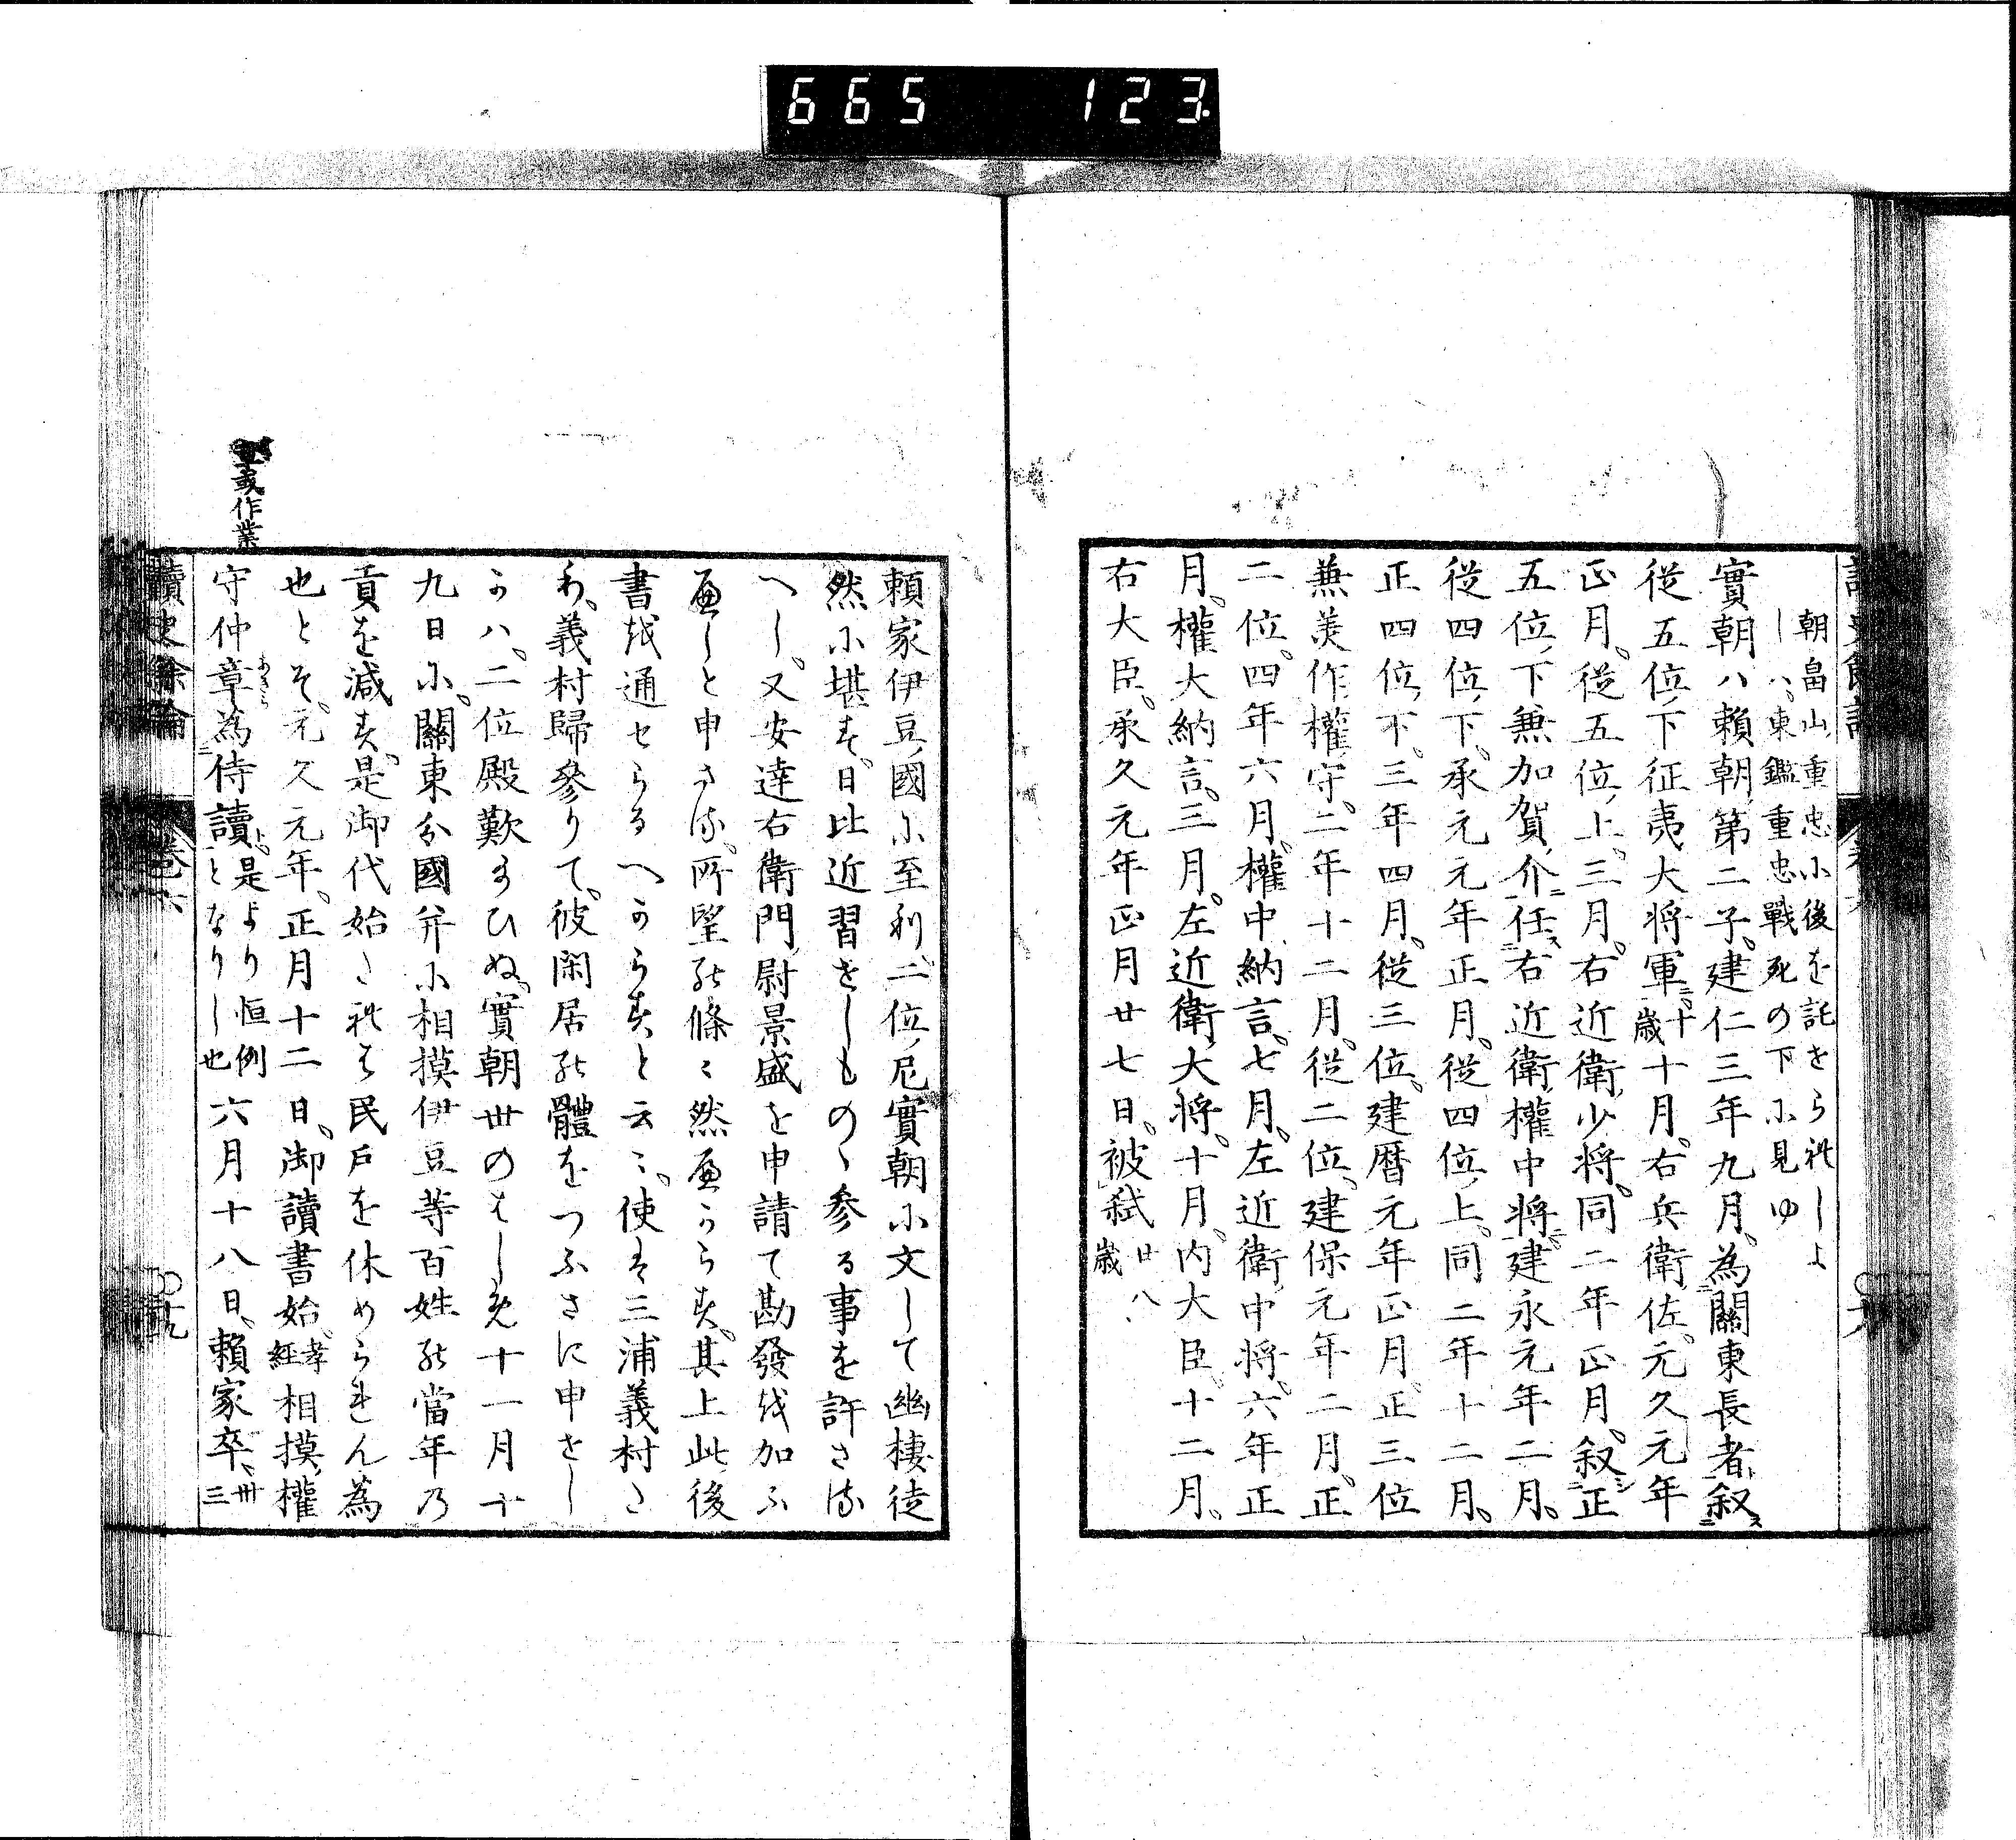 665 123
朝畠山重忠小後を託せられしよ
しハ東鑑重忠戰死の下小見ゆ
實朝ハ賴朝第二子建仁三年九月為關東長者叙ス
從五位下征夷大将軍十二歳十月右兵衛佐元久元年
正月從五位上三月右近衛少将同二年正月叙正
五位下兼加賀介任右近衛權中将建永元年二月
從四位下承元元年正月從四位上同二年十二月
正四位下三年四月從三位建暦元年正月正三位
兼美作權守二年十二月從二位建保元年二月正
二位四年六月權中納言七月左近衛中将六年正
月權大納言三月左近衛大将十月内大臣十二月
右大臣承久元年正月廿七日被弑廿八歳
賴家伊豆國小至利二位尼實朝小文して幽棲徒
然小堪す日比近習せしものゝ参る事を許さる
へし又安達右衛門尉景盛を申請て勘發越加ふ
へしと申さる所望能條々然へからす其上此後
書越通セらるへからすと云々使は三浦義村さ
り義村歸參りて彼閑居能體をつふさに申せし
かハ二位殿歎給ひぬ實朝世のはしめ十一月十
九日小關東分國并小相摸伊豆等百姓能當年乃
貢を減す是御代始されは民戸を休められん為
也とそ元久元年正月十二日御讀書始孝經相摸權
守仲章為侍讀是より恒例となりし也六月十八日賴家卒卅三
章或作業
讀史餘論 卷六 〇十九